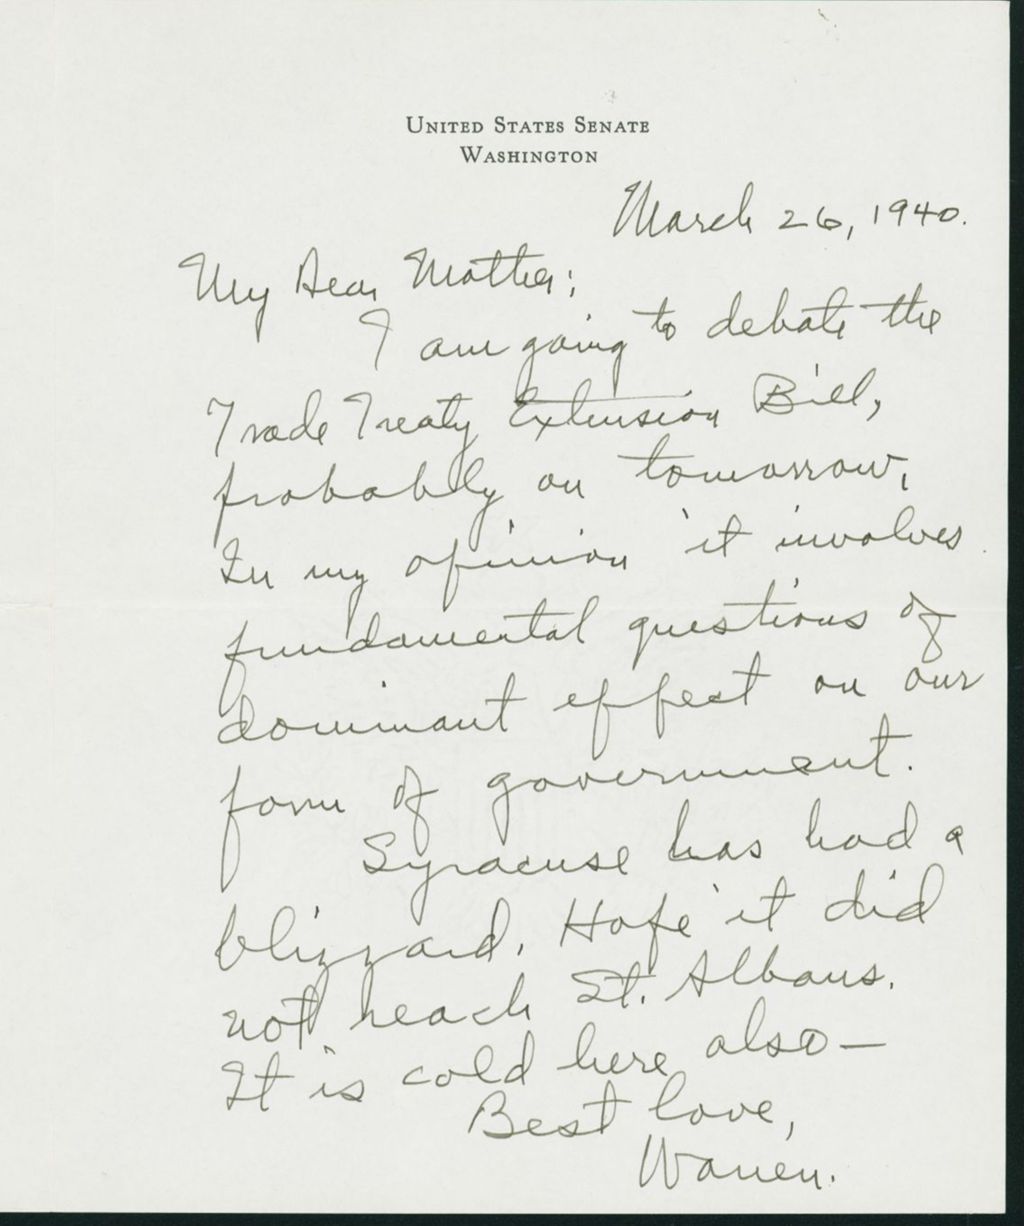 UNITED STATES SENATE
WASHINGTON
March 26, 1940.
My Dear Mother;
I am going to debate the
Trade Treaty Extension Bill,
probably on tomorrow.
In my opinion it involves
fundamental questions of
dominant effect on our
form of government.
Syracuse has had a
blizzard. Hope it did
not reach St. Albans.
It is cold here also—
Best love,
Warren.